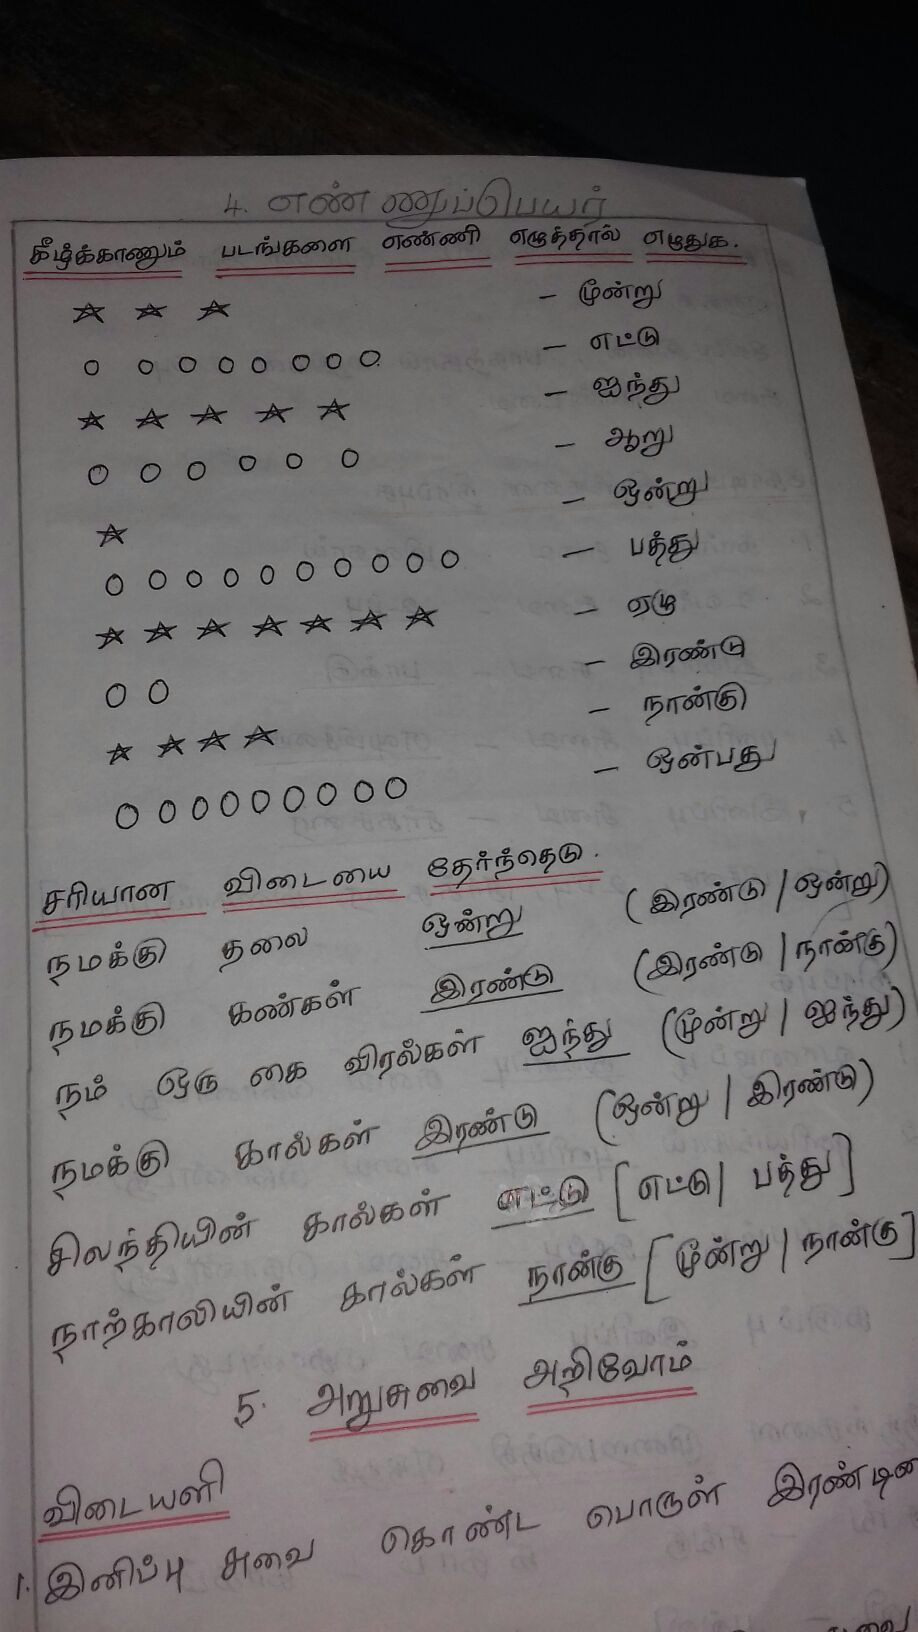 4. எண்ணுப்பெயர்
கீழ்க்காணும் படங்களை எண்ணி எழுத்தால் எழுதுக.
– மூன்று
– எட்டு
– ஐந்து
– ஆறு
– ஒன்று
– பத்து
– ஏழு
– இரண்டு
– நான்கு
– ஒன்பது
சரியான விடையை தேர்ந்தெடு.
நமக்கு தலை ஒன்று (இரண்டு / ஒன்று)
நமக்கு கண்கள் இரண்டு (இரண்டு / நான்கு)
நம் ஒரு கை விரல்கள் ஐந்து (மூன்று / ஐந்து)
நமக்கு கால்கள் இரண்டு (ஒன்று / இரண்டு)
சிலந்தியின் கால்கள் எட்டு [எட்டு / பத்து]
நாற்காலியின் கால்கள் நான்கு [மூன்று / நான்கு]
5. அறுசுவை அறிவோம்
விடையளி
1. இனிப்பு சுவை கொண்ட பொருள்